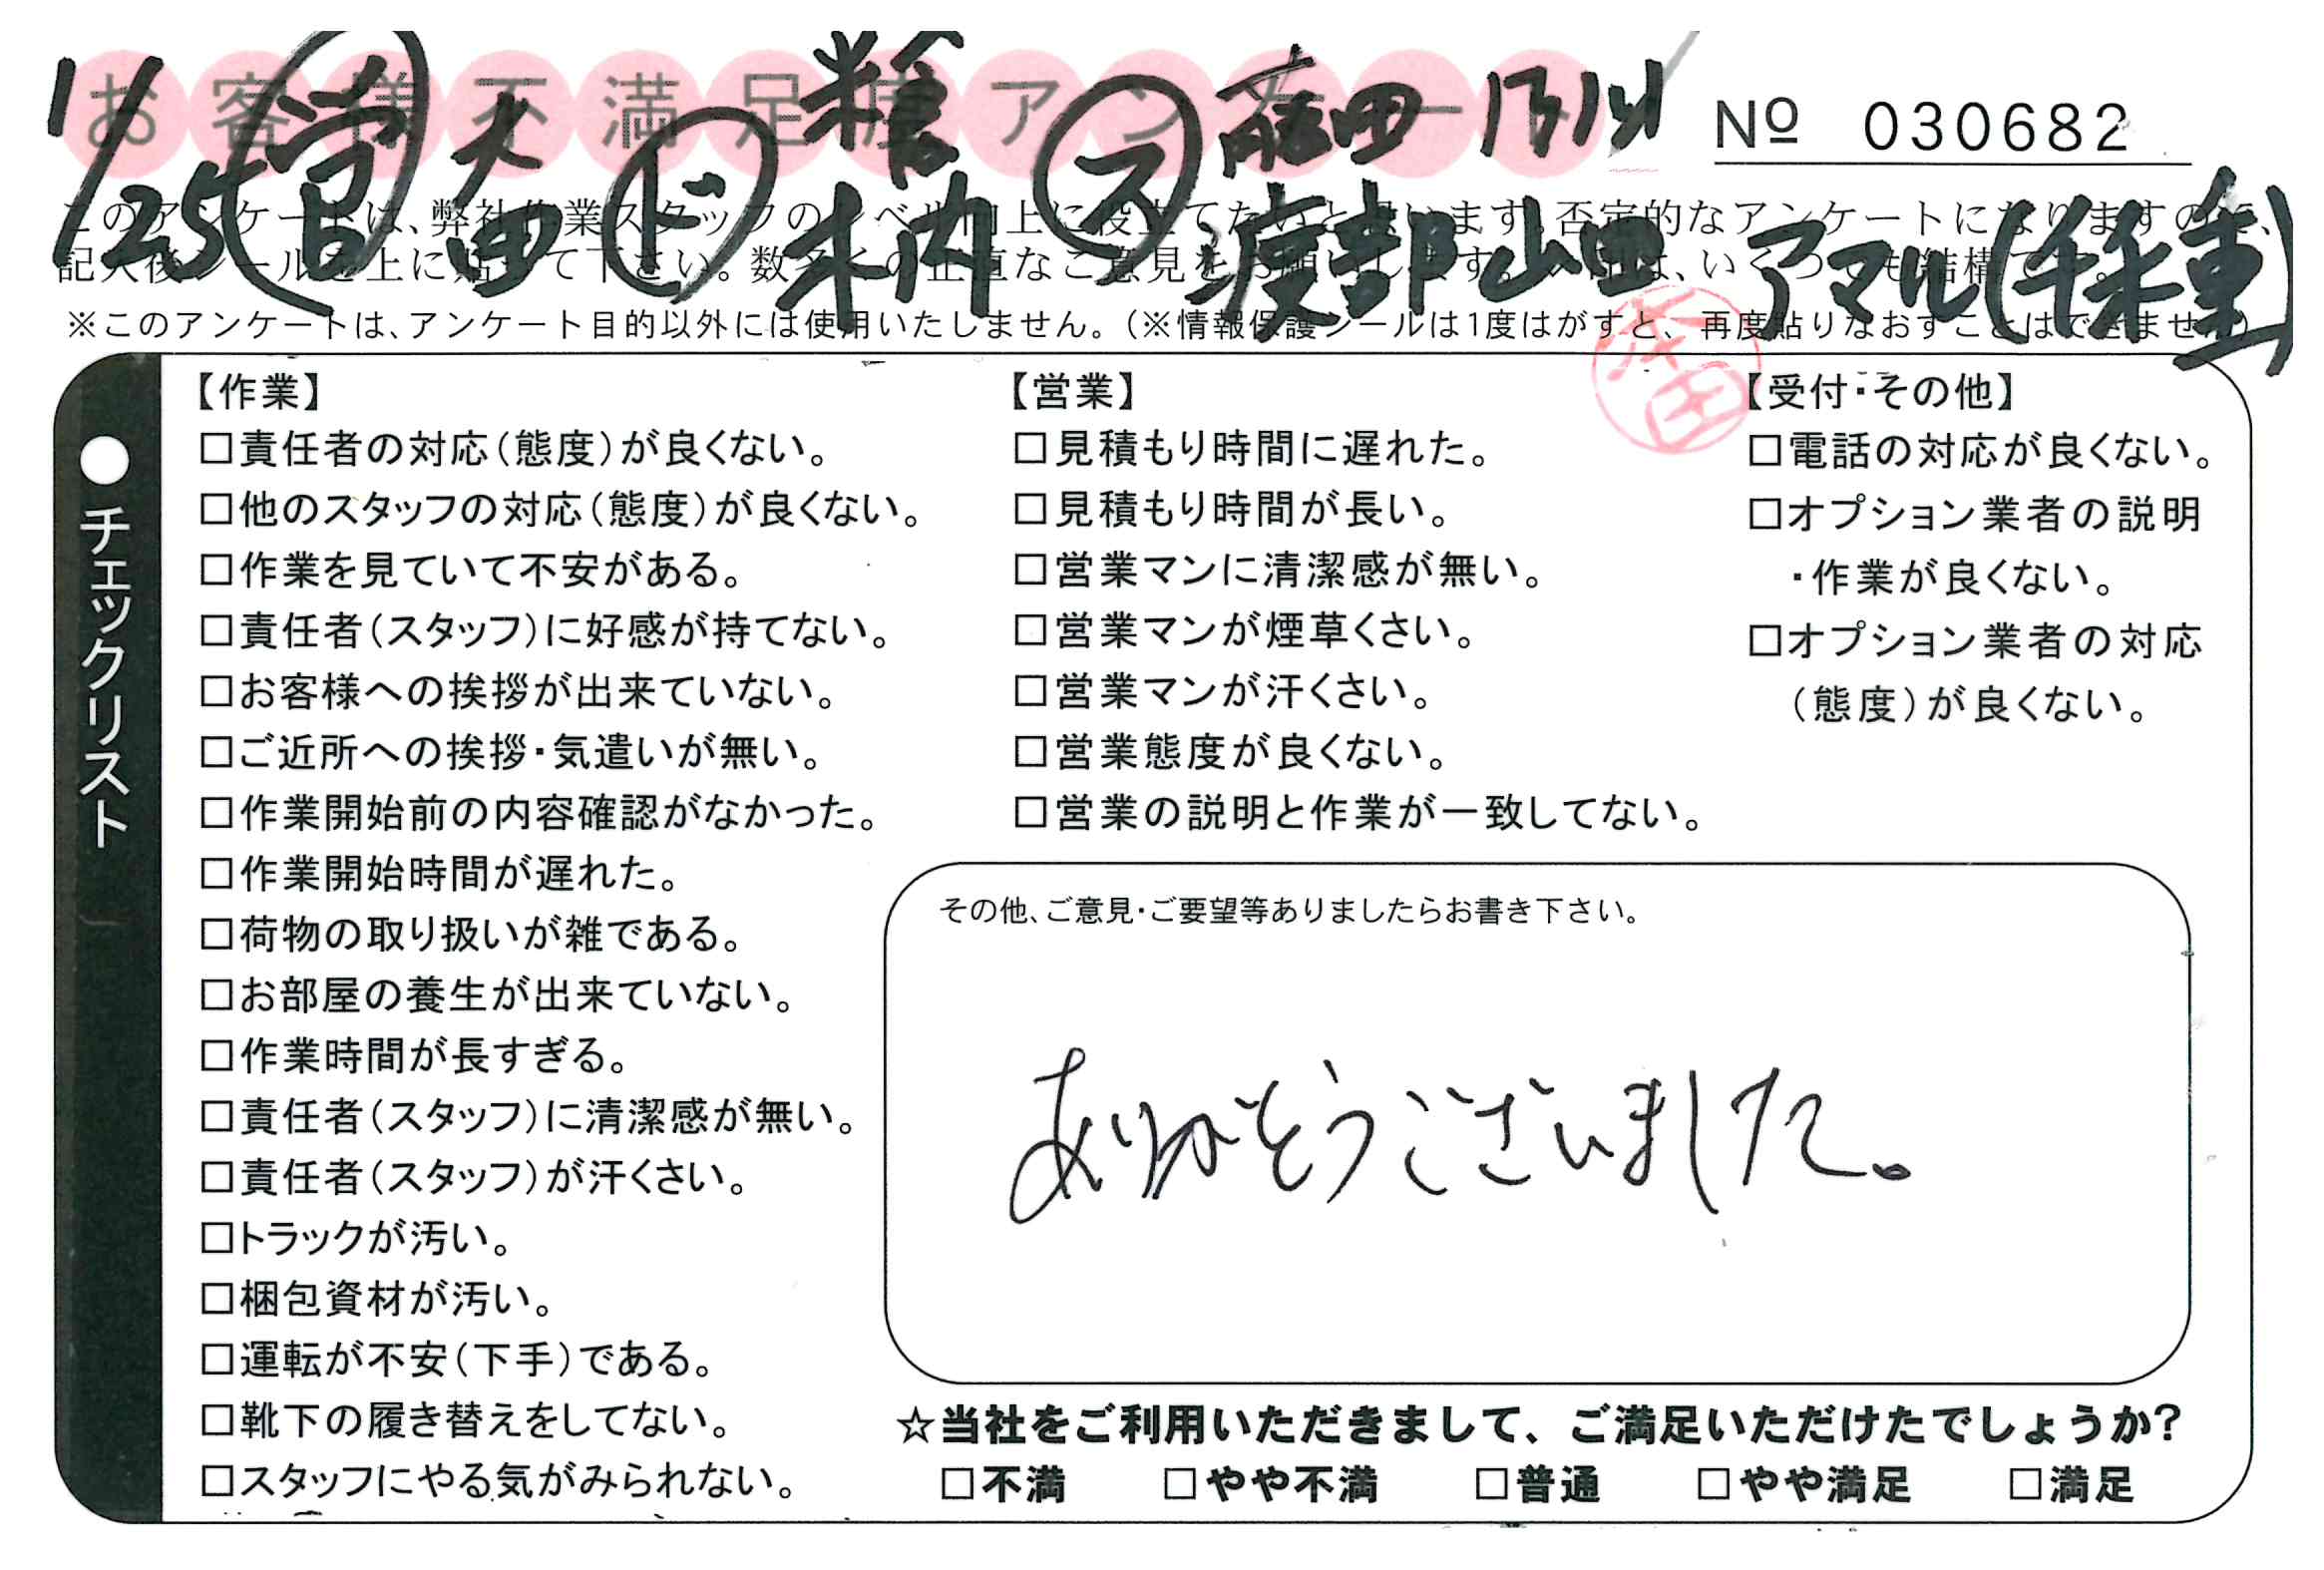 お客様不満足度アンケート
1/25 営 太田 ド 木内 ス 藤田 渡部 山田 アマル(千種)
№ 030682
このアンケートは、弊社作業スタッフのレベル向上に役立てたいと思います。否定的なアンケートになりますので、
記入後シールを上に貼って下さい。数多くの正直なご意見をお願いします。
※このアンケートは、アンケート目的以外には使用いたしません。(※情報保護シールは1度はがすと、再度貼りなおすことはできません)
●チェックリスト
【作業】
□責任者の対応(態度)が良くない。
□他のスタッフの対応(態度)が良くない。
□作業を見ていて不安がある。
□責任者(スタッフ)に好感が持てない。
□お客様への挨拶が出来ていない。
□ご近所への挨拶・気遣いが無い。
□作業開始前の内容確認がなかった。
□作業開始時間が遅れた。
□荷物の取り扱いが雑である。
□お部屋の養生が出来ていない。
□作業時間が長すぎる。
□責任者(スタッフ)に清潔感が無い。
□責任者(スタッフ)が汗くさい。
□トラックが汚い。
□梱包資材が汚い。
□運転が不安(下手)である。
□靴下の履き替えをしてない。
□スタッフにやる気がみられない。
【営業】
□見積もり時間に遅れた。
□見積もり時間が長い。
□営業マンに清潔感が無い。
□営業マンが煙草くさい。
□営業マンが汗くさい。
□営業態度が良くない。
□営業の説明と作業が一致してない。
【受付・その他】
□電話の対応が良くない。
□オプション業者の説明
・作業が良くない。
□オプション業者の対応
(態度)が良くない。
その他、ご意見・ご要望等ありましたらお書き下さい。
ありがとうございました。
☆当社をご利用いただきまして、ご満足いただけたでしょうか?
□不満 □やや不満 □普通 □やや満足 □満足